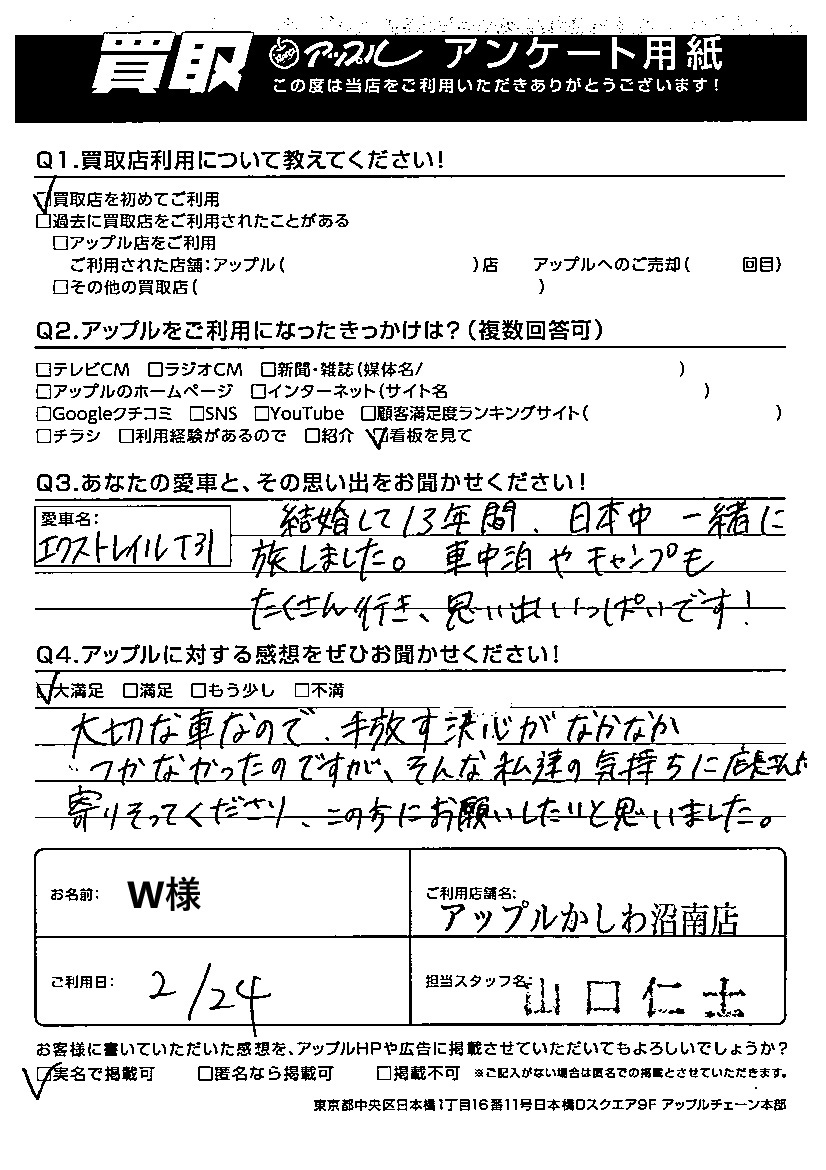 買取 アップル アンケート用紙
この度は当店をご利用いただきありがとうございます!
Q1.買取店利用について教えてください!
☑買取店を初めてご利用
□過去に買取店をご利用されたことがある
□アップル店をご利用
ご利用された店舗:アップル( )店 アップルへのご売却( 回目)
□その他の買取店( )
Q2.アップルをご利用になったきっかけは?(複数回答可)
□テレビCM □ラジオCM □新聞・雑誌(媒体名/ )
□アップルのホームページ □インターネット(サイト名 )
□Googleクチコミ □SNS □YouTube □顧客満足度ランキングサイト( )
□チラシ □利用経験があるので □紹介 ☑看板を見て
Q3.あなたの愛車と、その思い出をお聞かせください!
愛車名:
エクストレイルT31
結婚して13年間、日本中一緒に
旅しました。車中泊やキャンプも
たくさん行き、思い出いっぱいです!
Q4.アップルに対する感想をぜひお聞かせください!
☑大満足 □満足 □もう少し □不満
大切な車なので、手放す決心がなかなか
つかなかったのですが、そんな私達の気持ちに店長さんが
寄りそってくださり、この方にお願いしたいと思いました。
お名前: W様
ご利用店舗名:
アップルかしわ沼南店
ご利用日: 2/24
担当スタッフ名: 山口仁士
お客様に書いていただいた感想を、アップルHPや広告に掲載させていただいてもよろしいでしょうか?
☑実名で掲載可 □匿名なら掲載可 □掲載不可 ※ご記入がない場合は匿名での掲載とさせていただきます。
東京都中央区日本橋1丁目16番11号日本橋Dスクエア9F アップルチェーン本部